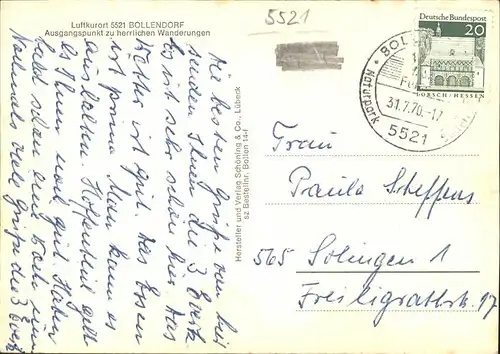 Luftkurort 5521 BOLLENDORF
Ausgangspunkt zu herrlichen Wanderungen
5521
Die besten Grüße von hier
senden Ihnen die 3
Es ist sehr schön hier. Das
Wetter ist gut. Das Essen
ist prima. Man kann es
aushalten. Hoffentlich geht
es Ihnen auch gut. Haben
bald schon eine
Nochmals viele Grüße die 3
Hersteller und Verlag Schöning & Co., Lübeck
sz Bestellnr. Bollen 14-f
Deutsche Bundespost
20
LORSCH/HESSEN
BOLL
Naturpark
31.7.70.-17
5521
Frau
Paula Steffens
565 Solingen 1
Freiligrathstr. 17